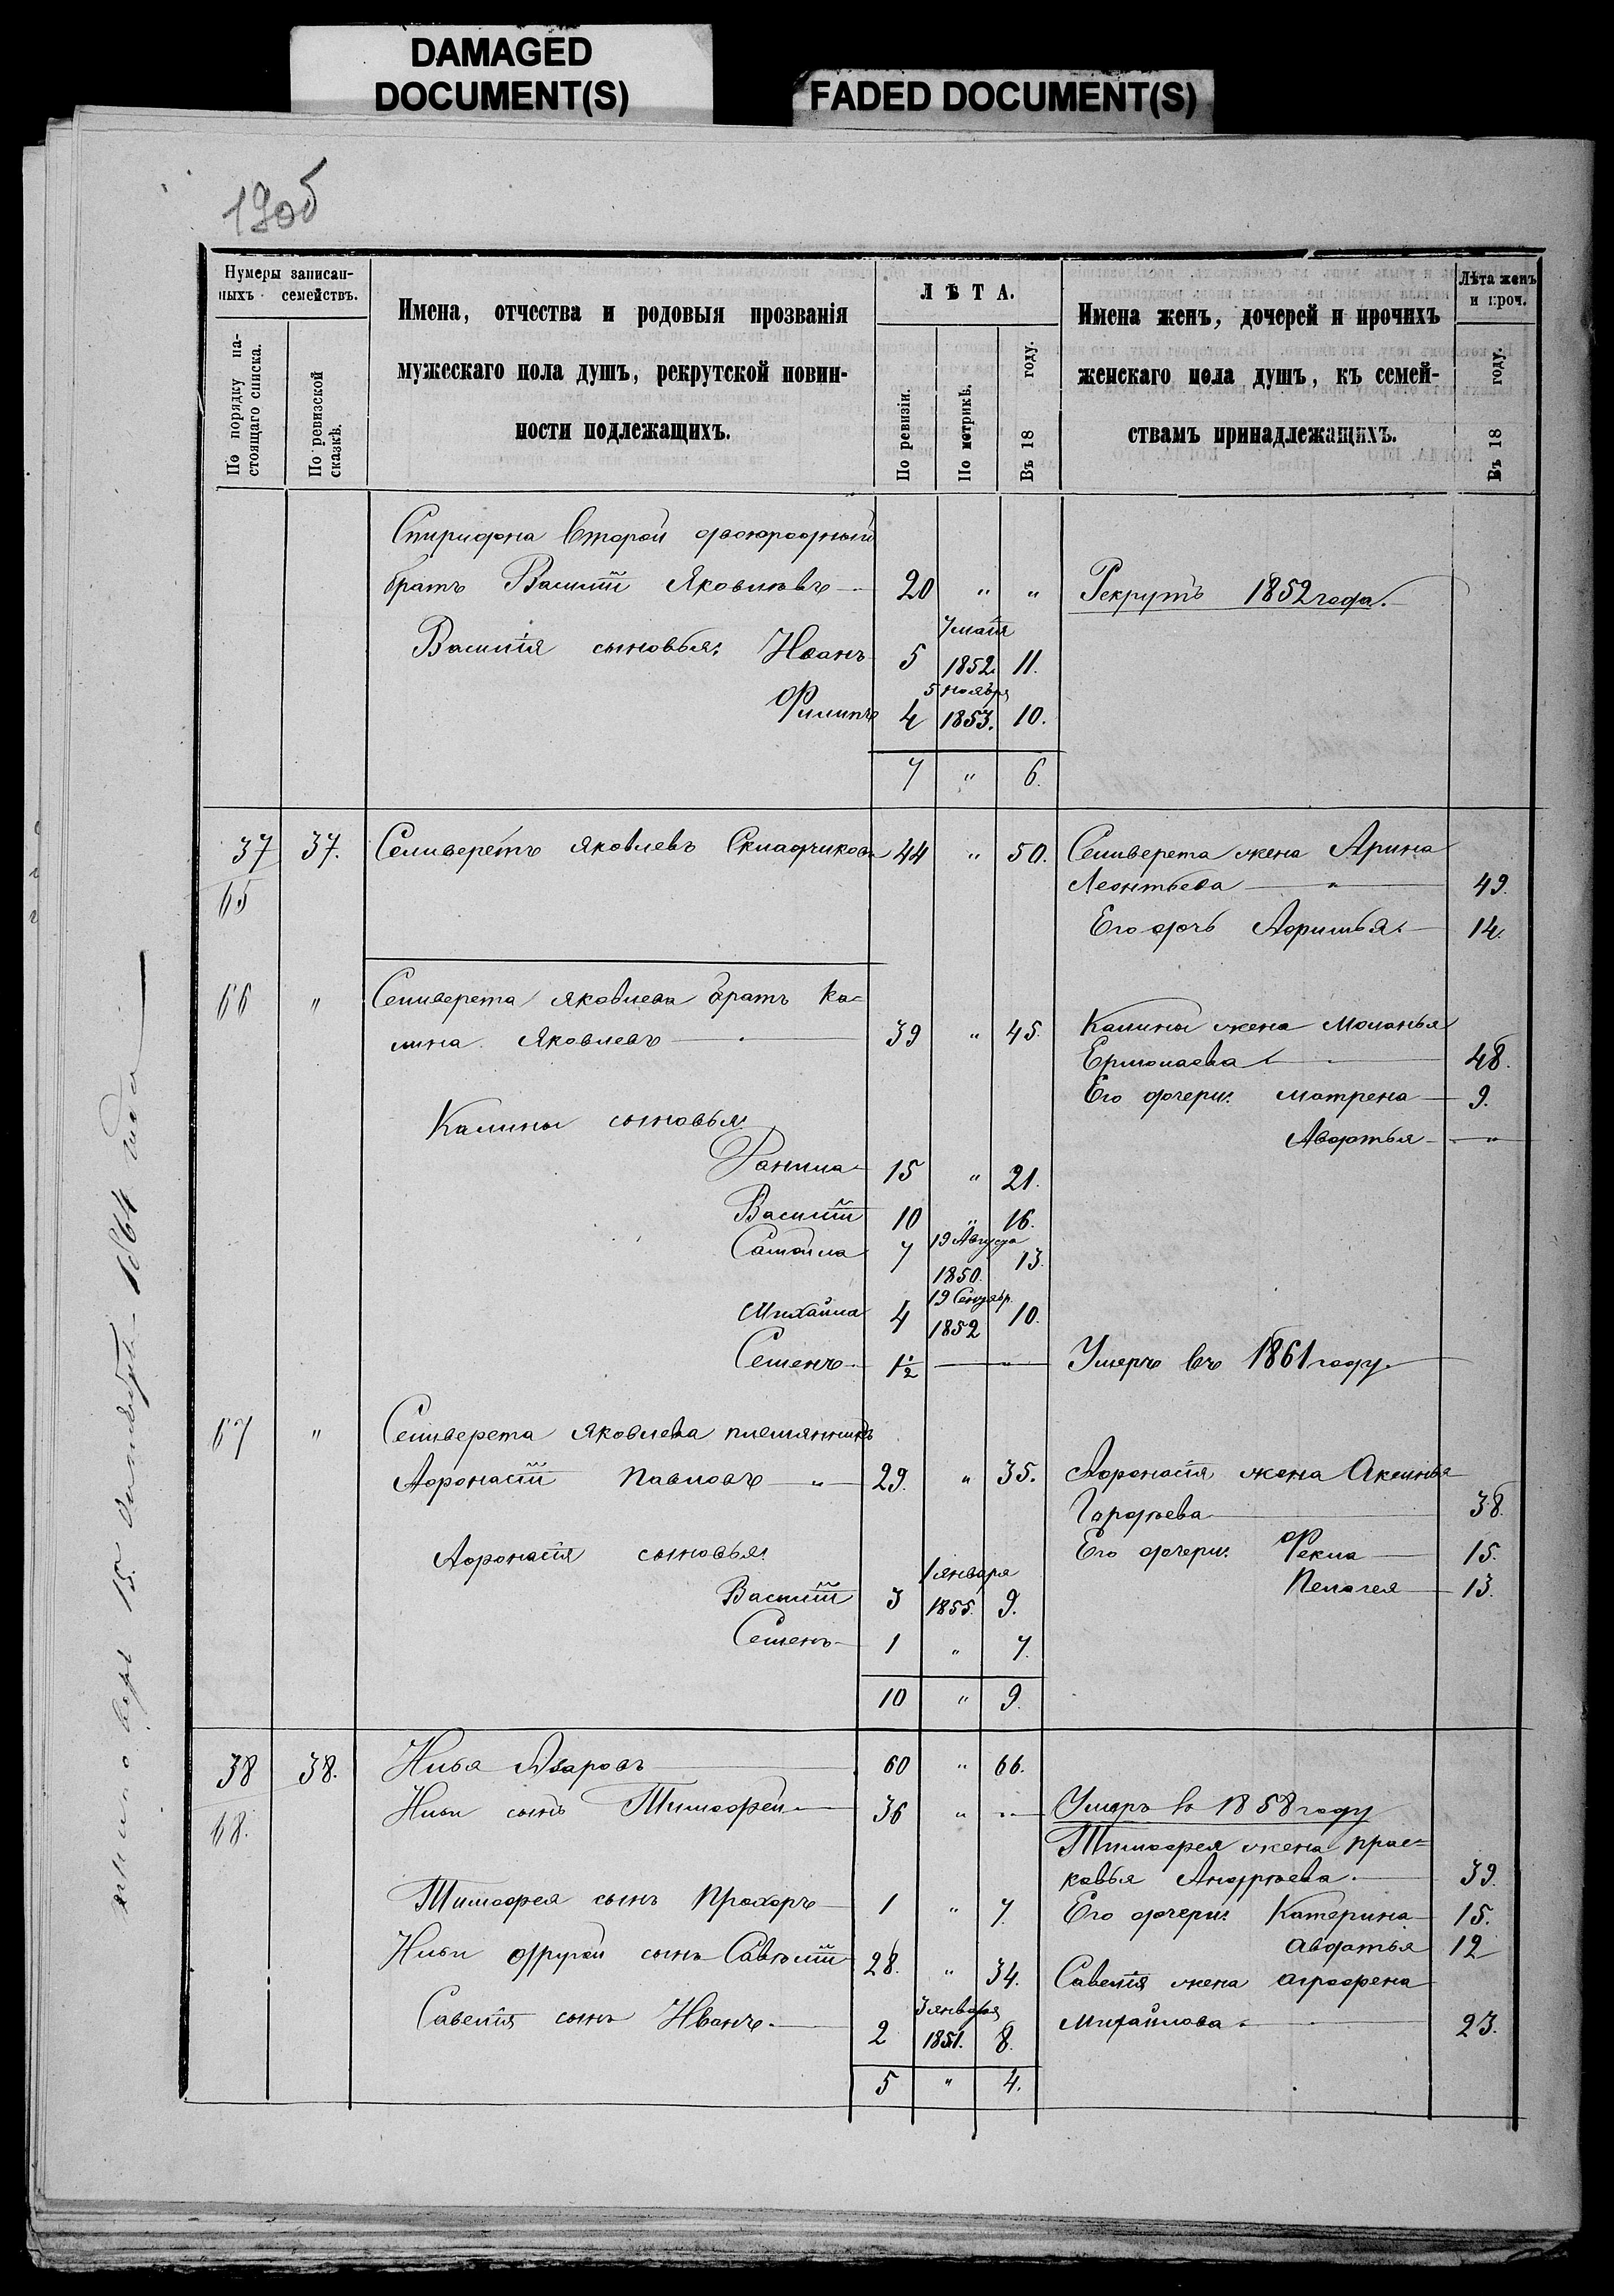 DAMAGED
DOCUMENT(S)
FADED DOCUMENT(S)
190б
Нумеры записан-
ныхъ семействъ.
По порядку на-
стоящаго списка.
По ревизской
сказкѣ.
Имена, отчества и родовыя прозванія
мужескаго пола душъ, рекрутской повин-
ности подлежащихъ.
ЛѢТА.
По ревизіи.
По метрикѣ.
Въ 18 году.
Имена женъ, дочерей и прочихъ
женскаго пола душъ, къ семей-
ствамъ принадлежащихъ.
Лѣта женъ
и проч.
Въ 18 году.
Спиридона второй двоюродный
братъ Василій Яковлевъ 20 " " Рекрутъ 1852 года.
7 мая
Василія сыновья: Иванъ 5 1852. 11.
5 ноября
Филипъ 4 1853. 10.
7 " 6.
37 37. Селиверстъ Яковлевъ Складчиковъ 44 " 50. Селиверста жена Арина
65 Леонтьева " 49.
Его дочь 14.
66 " Селиверста Яковлева братъ Ка-
лина Яковлевъ 39 " 45. Калины жена Маланья
Ермолаева 48.
Его дочери: Матрена 9.
Калины сыновья:
Авдотья "
Данила 15 " 21.
Василій 10 " 16.
19 Августа
Самойла 7 1850. 13.
19 Сентябр.
Михайла 4 1852 10.
Семенъ 1½ " Умеръ въ 1861 году.
67 " Селиверста Яковлева племянникъ
Афонасій Павловъ " 29. " 35. Афонасія жена Аксинья
38.
Афонасія сыновья:
Его дочери: Фекла 15.
1 января
Василій 3 1855. 9.
Пелагея 13.
Семенъ 1 " 7.
10 " 9.
38 38. Илья Азаровъ 60 " 66.
68. Ильи сынъ Тимофей 36 " " Умеръ в 1858 году
Тимофея жена Прас-
ковья Андреева 39.
Тимофея сынъ Прохоръ 1 " 7. Его дочери: Катерина 15.
Авдотья 12
Ильи другой сынъ Савелій 28. " 34. Савелія жена Аграфена
3 января
Савелія сынъ Иванъ. 2 1851. 8. Михайлова. 23.
5 " 4.
1864 года